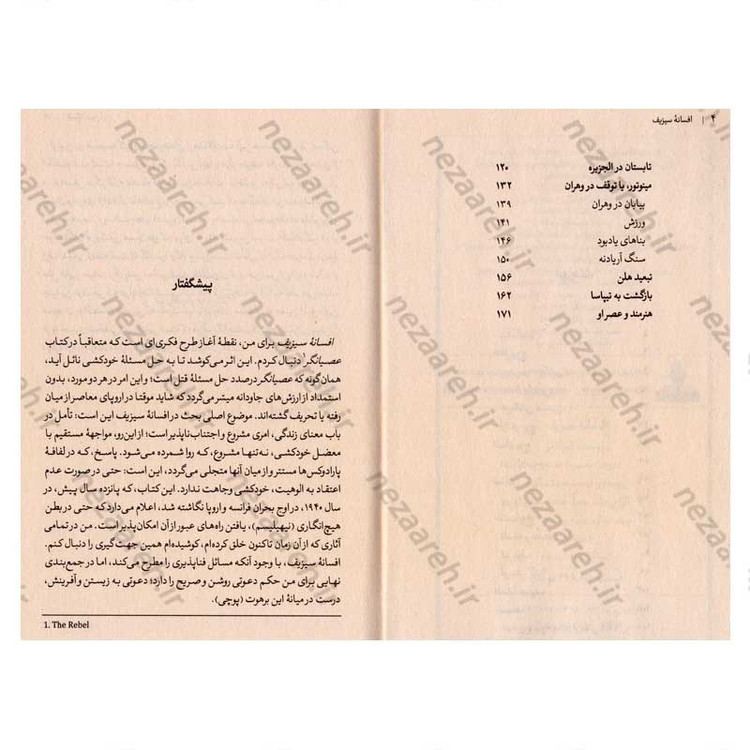 ۴ | افسانهٔ سیزیف
تابستان در الجزیره ۱۲۰
مینوتور، یا توقف در وهران ۱۳۲
بیابان در وهران ۱۳۹
ورزش ۱۴۱
بناهای یادبود ۱۴۶
سنگ آریادنه ۱۵۰
تبعید هلن ۱۵۶
بازگشت به تیپاسا ۱۶۲
هنرمند و عصر او ۱۷۱
پیشگفتار
افسانهٔ سیزیف برای من، نقطهٔ آغاز طرح فکری‌ای است که متعاقباً در کتاب
عصیانگر۱ دنبال کردم. این اثر می‌کوشد تا به حل مسئلهٔ خودکشی نائل آید،
همان‌گونه که عصیانگر درصدد حل مسئلهٔ قتل است؛ و این امر در هر دو مورد، بدون
استمداد از ارزش‌های جاودانه میسر می‌گردد که شاید موقتا در اروپای معاصر از میان
رفته یا تحریف گشته‌اند. موضوع اصلی بحث در افسانهٔ سیزیف این است: تأمل در
باب معنای زندگی، امری مشروع و اجتناب‌ناپذیر است؛ از این‌رو، مواجههٔ مستقیم با
معضل خودکشی، نه‌تنها مشروع، که روا شمرده می‌شود. پاسخ، که در لفافهٔ
پارادوکس‌ها مستتر و از میان آنها متجلی می‌گردد، این است: حتی در صورت عدم
اعتقاد به الوهیت، خودکشی وجاهت ندارد. این کتاب، که پانزده سال پیش، در
سال ۱۹۴۰، در اوج بحران فرانسه و اروپا نگاشته شد، اعلام می‌دارد که حتی در بطن
هیچ‌انگاری (نیهیلیسم)، یافتن راه‌های عبور از آن امکان‌پذیر است. من در تمامی
آثاری که از آن زمان تاکنون خلق کرده‌ام، کوشیده‌ام همین جهت‌گیری را دنبال کنم.
افسانهٔ سیزیف، با وجود آنکه مسائل فناپذیری را مطرح می‌کند، اما در جمع‌بندی
نهایی برای من حکم دعوتی روشن و صریح را دارد؛ دعوتی به زیستن و آفرینش،
درست در میانهٔ این برهوت (پوچی).
1. The Rebel
nezaareh.ir
nezaareh.ir
nezaareh.ir
nezaareh.ir
nezaareh.ir
nezaareh.ir
nezaareh.ir
nezaareh.ir
nezaareh.ir